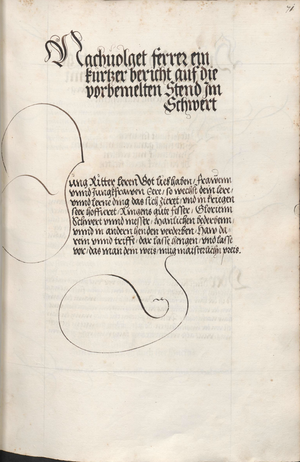 Nachuolget ferrer ein
kurtzer bericht auf die
vorbemelten Stend Im
Schwert
Jung Ritter leren Got lieb haben, frawenn
vnnd Jungkfrawen Eere, so wechst dein Eere,
vnnd lerne ding das dich zieret, vnd in kriegen
seer hoffieret, Ringens güte fesser, Glefenn
Schwert vnnd messer, manlichen bederbenn
vnnd in andern henden verderben, Haw da
rein vnnd trifft, dar lasse hengen, vnd lasse
vor, das man dein weis, mug maisterlichn preis.